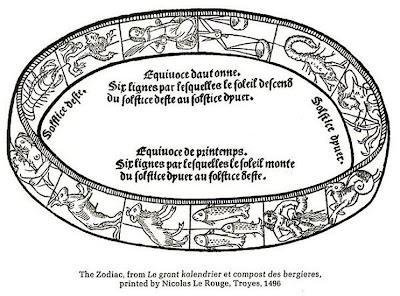 Equinoce dautonne.
Six signes par lesquelles le soleil descend
du solstice deste au solstice dyuer.
Solstice deste.
Solstice dyuer.
Equinoce de printemps.
Six signes par lesquelles le soleil monte
du solstice dyuer au solstice deste.
The Zodiac, from Le grant kalendrier et compost des bergieres,
printed by Nicolas Le Rouge, Troyes, 1496